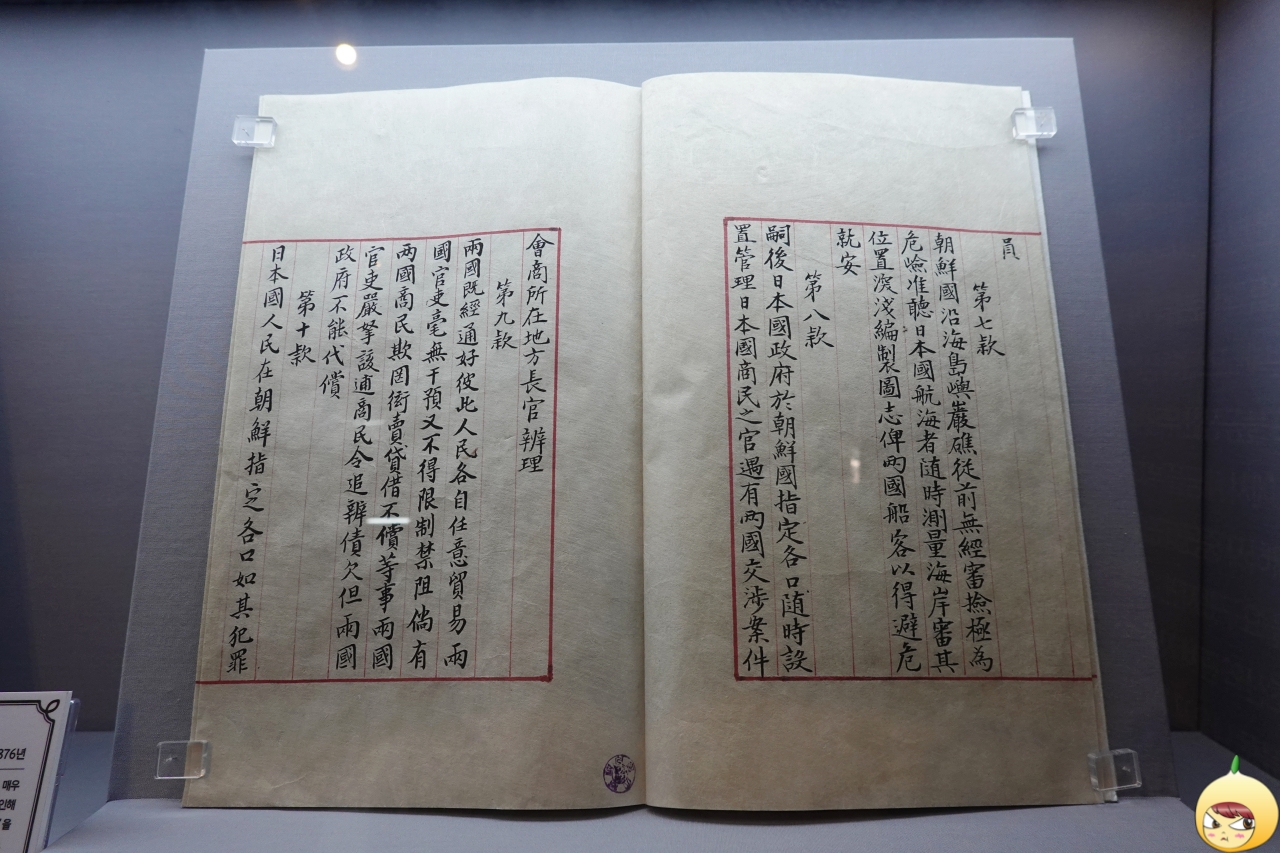 員
第七款
朝鮮國沿海島嶼巖礁從前無經審撿極為
危嶮准聽日本國航海者随時測量海岸審其
位置深淺編製圖志俾兩國船客以得避危
就安
第八款
嗣後日本國政府於朝鮮國指定各口随時設
置管理日本國商民之官遇有兩國交涉案件
會商所在地方長官辨理
第九款
兩國既經通好彼此人民各自任意貿易兩
國官吏毫無干預又不得限制禁阻倘有
两國商民欺罔衒賣貸借不償等事兩國
官吏嚴拏該逋商民令追辨債欠但兩國
政府不能代償
第十款
日本國人民在朝鮮指定各口如其犯罪
876년
매우
인해